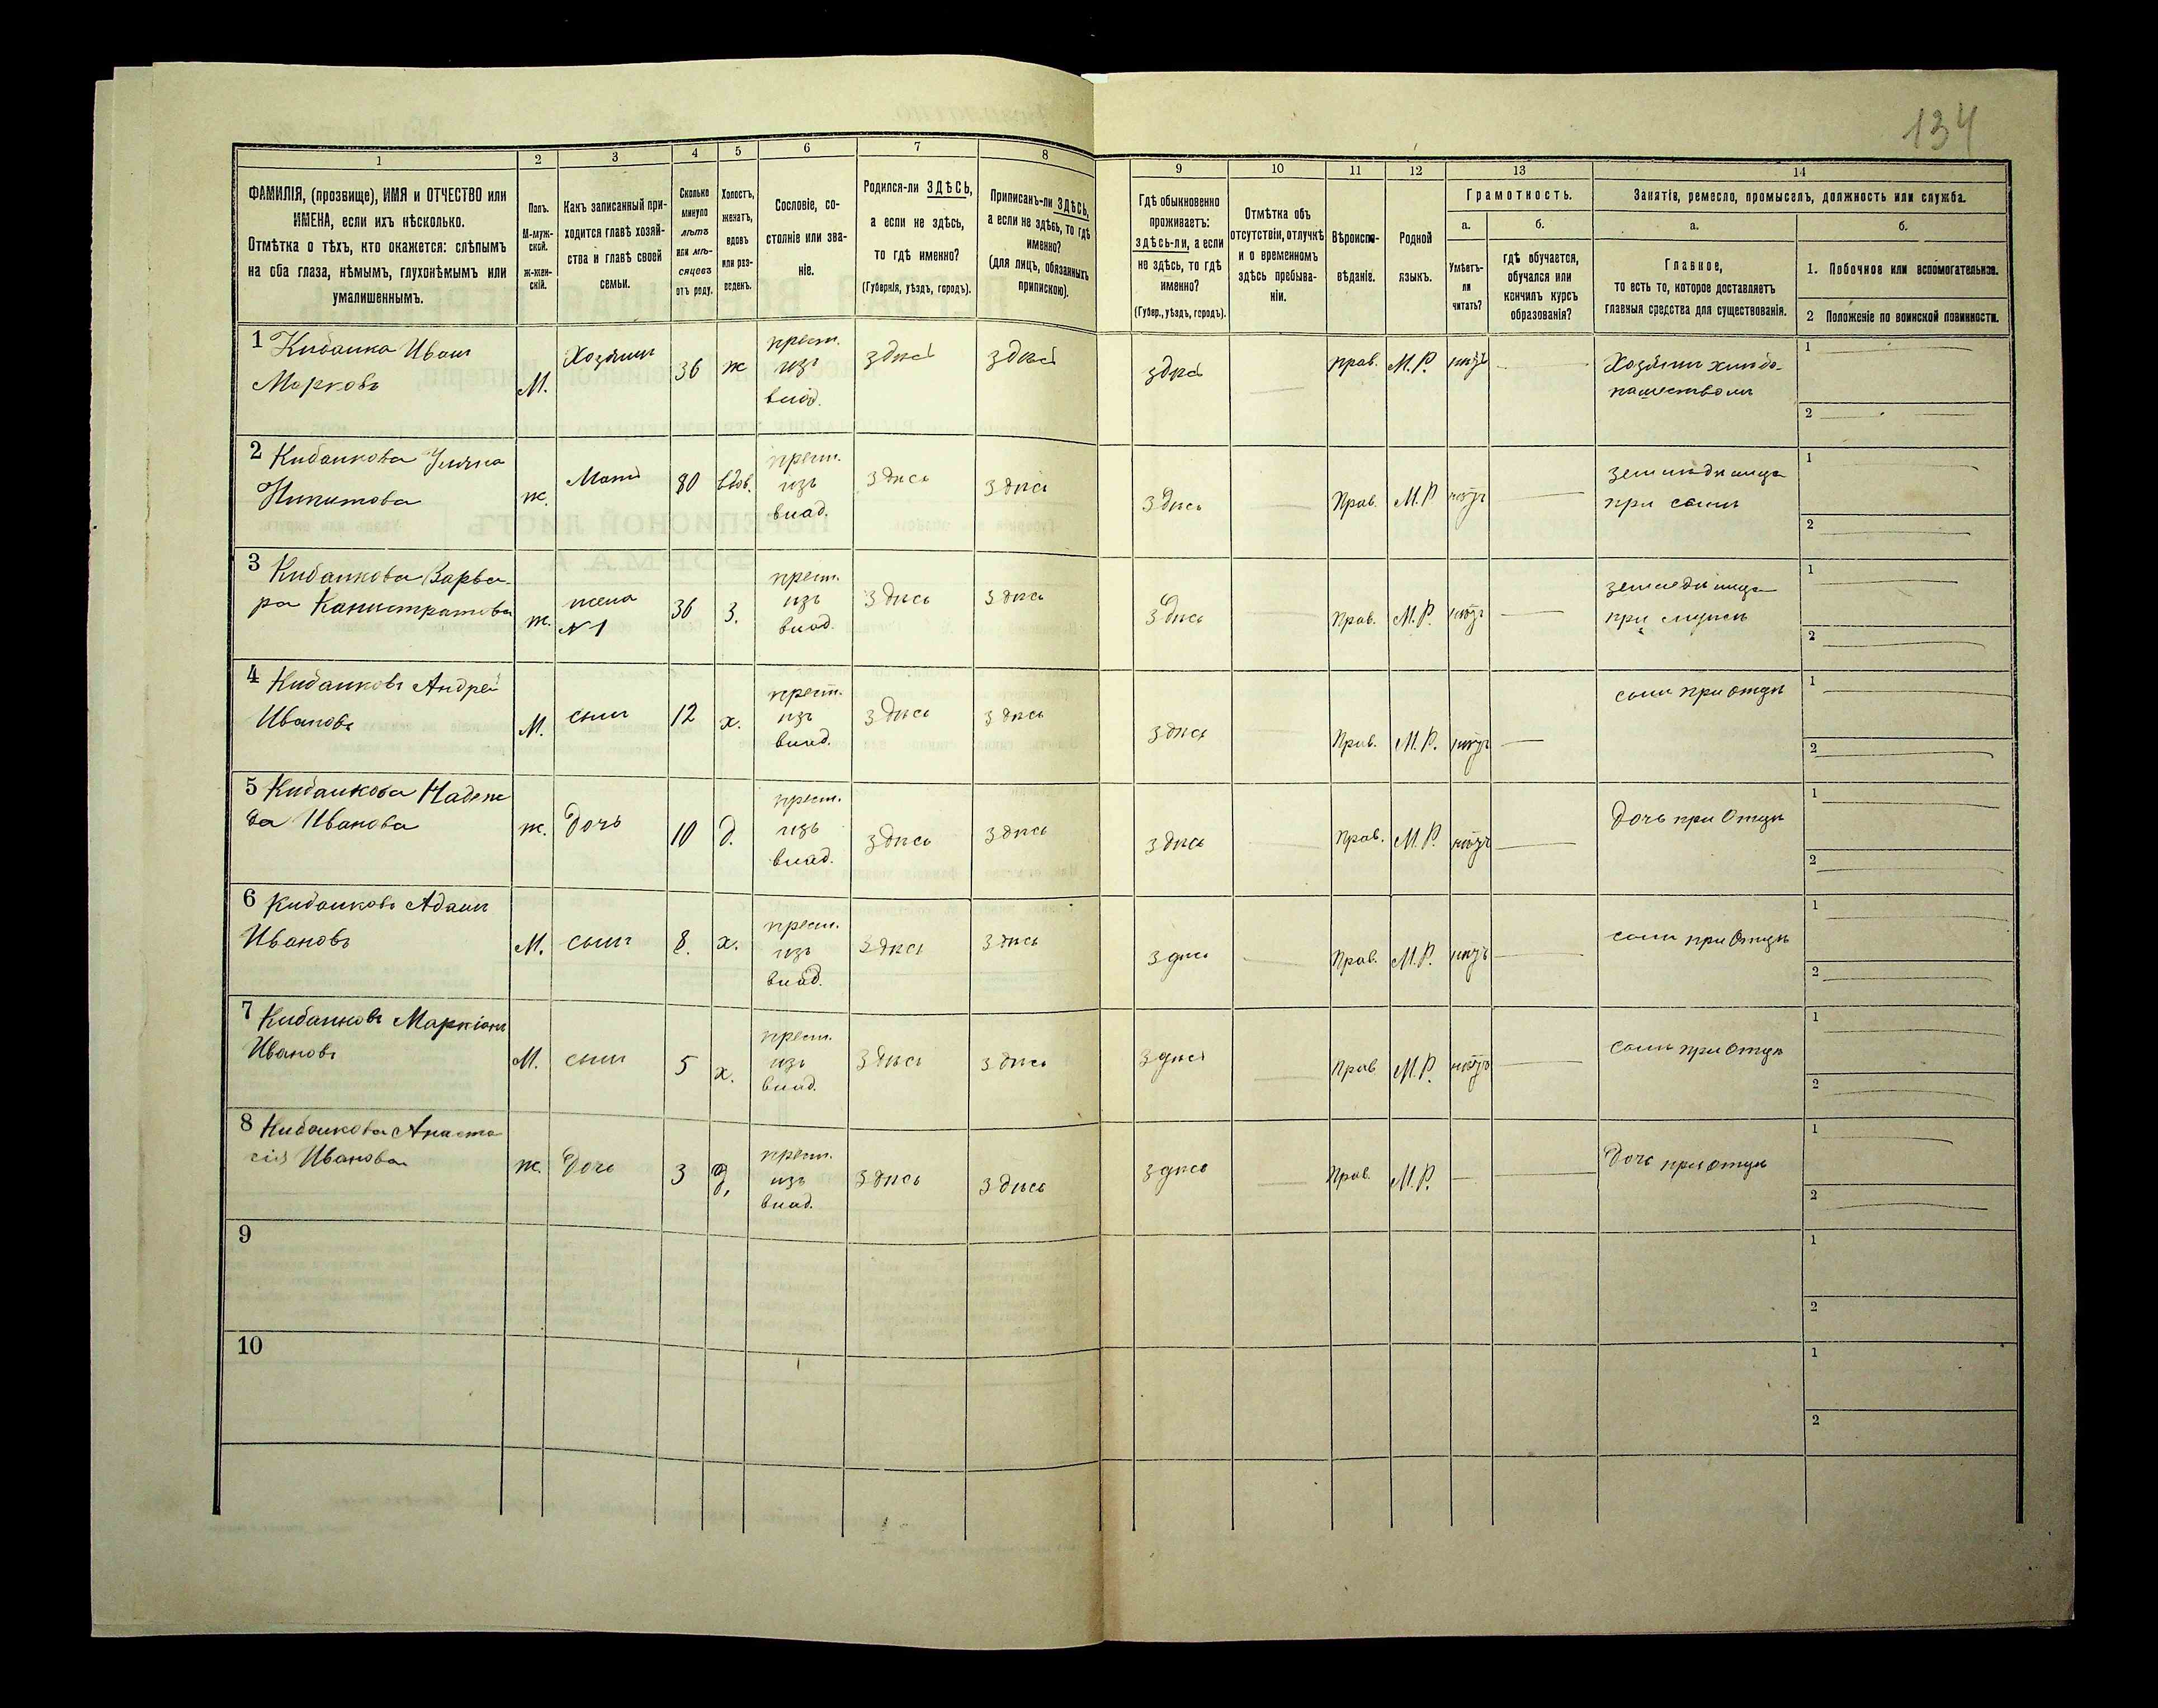 134
1 2 3 4 5 6 7 8 9 10 11 12 13 14
ФАМИЛІЯ, (прозвище), ИМЯ и ОТЧЕСТВО или
ИМЕНА, если ихъ нѣсколько.
Отмѣтка о тѣхъ, кто окажется: слѣпымъ
на оба глаза, нѣмымъ, глухонѣмымъ или
умалишеннымъ.
Полъ.
М-муж-
ской.
ж-жен-
скій.
Какъ записанный при-
ходится главѣ хозяй-
ства и главѣ своей
семьи.
Сколько
минуло
лѣтъ
или мѣ-
сяцевъ
отъ роду.
Холостъ,
женатъ,
вдовъ
или раз-
веденъ.
Сословіе, со-
стояніе или зва-
ніе.
Родился-ли ЗДѢСЬ,
а если не здѣсь,
то гдѣ именно?
(Губернія, уѣздъ, городъ).
Приписанъ-ли ЗДѢСЬ,
а если не здѣсь, то гдѣ
именно?
(для лицъ, обязанныхъ
припискою).
Гдѣ обыкновенно
проживаетъ:
здѣсь-ли, а если
не здѣсь, то гдѣ
именно?
(Губер., уѣздъ, городъ).
Отмѣтка объ
отсутствіи, отлучкѣ
и о временномъ
здѣсь пребыва-
ніи.
Вѣроиспо-
вѣданіе.
Родной
языкъ.
Грамотность.
а.
Умѣетъ-
ли
читать?
б.
гдѣ обучается,
обучался или
кончилъ курсъ
образованія?
Занятія, ремесло, промыселъ, должность или служба.
а.
Главное,
то есть то, которое доставляетъ
главныя средства для существованія.
б.
1. Побочное или вспомогательное.
2 Положеніе по воинской повинности.
1 Кибалка Иванъ
Марковъ
М. Хозяинъ 36 ж
крест.
изъ
влад.
здѣсь здѣсь здѣсь прав. М.Р. нѣтъ
Хозяинъ хлѣбо-
пашествомъ
1
2
2 Кибалкова
Никитова
ж. Мать 80 вдов.
крест.
изъ
влад.
здѣсь здѣсь здѣсь Прав. М.Р нѣтъ
при сынѣ
1
2
3 Кибалкова Варва-
ра Калистратова
ж. жена
№1
36 З.
крест.
изъ
влад.
здѣсь здѣсь здѣсь Прав. М.Р. нѣтъ
при мужѣ
1
2
4 Кибалковъ Андрей
Ивановъ
М. сынъ 12 х.
крест.
изъ
влад.
здѣсь здѣсь здѣсь Прав. М.Р. нѣтъ
сынъ при отцѣ
1
2
5 Кибалкова Надеж
да Иванова
ж. Дочь 10 д.
крест.
изъ
влад.
здѣсь здѣсь здѣсь Прав. М.Р. нѣтъ
Дочь при Отцѣ
1
2
6 Кибалковъ Адамъ
Ивановъ
М. сынъ 8. х.
крест.
изъ
влад.
здѣсь здѣсь здѣсь Прав. М.Р. нѣтъ
сынъ при Отцѣ
1
2
7 Кибалковъ Маркіанъ
Ивановъ
М. сынъ 5 х.
крест.
изъ
влад.
здѣсь здѣсь здѣсь Прав М.Р. нѣтъ
сынъ при Отцѣ
1
2
8 Кибалкова Анаста
сія Иванова
ж. Дочь 3 д.
крест.
изъ
влад.
здѣсь здѣсь здѣсь Прав. М.Р.
Дочь при отцѣ
1
2
9
1
2
10
1
2